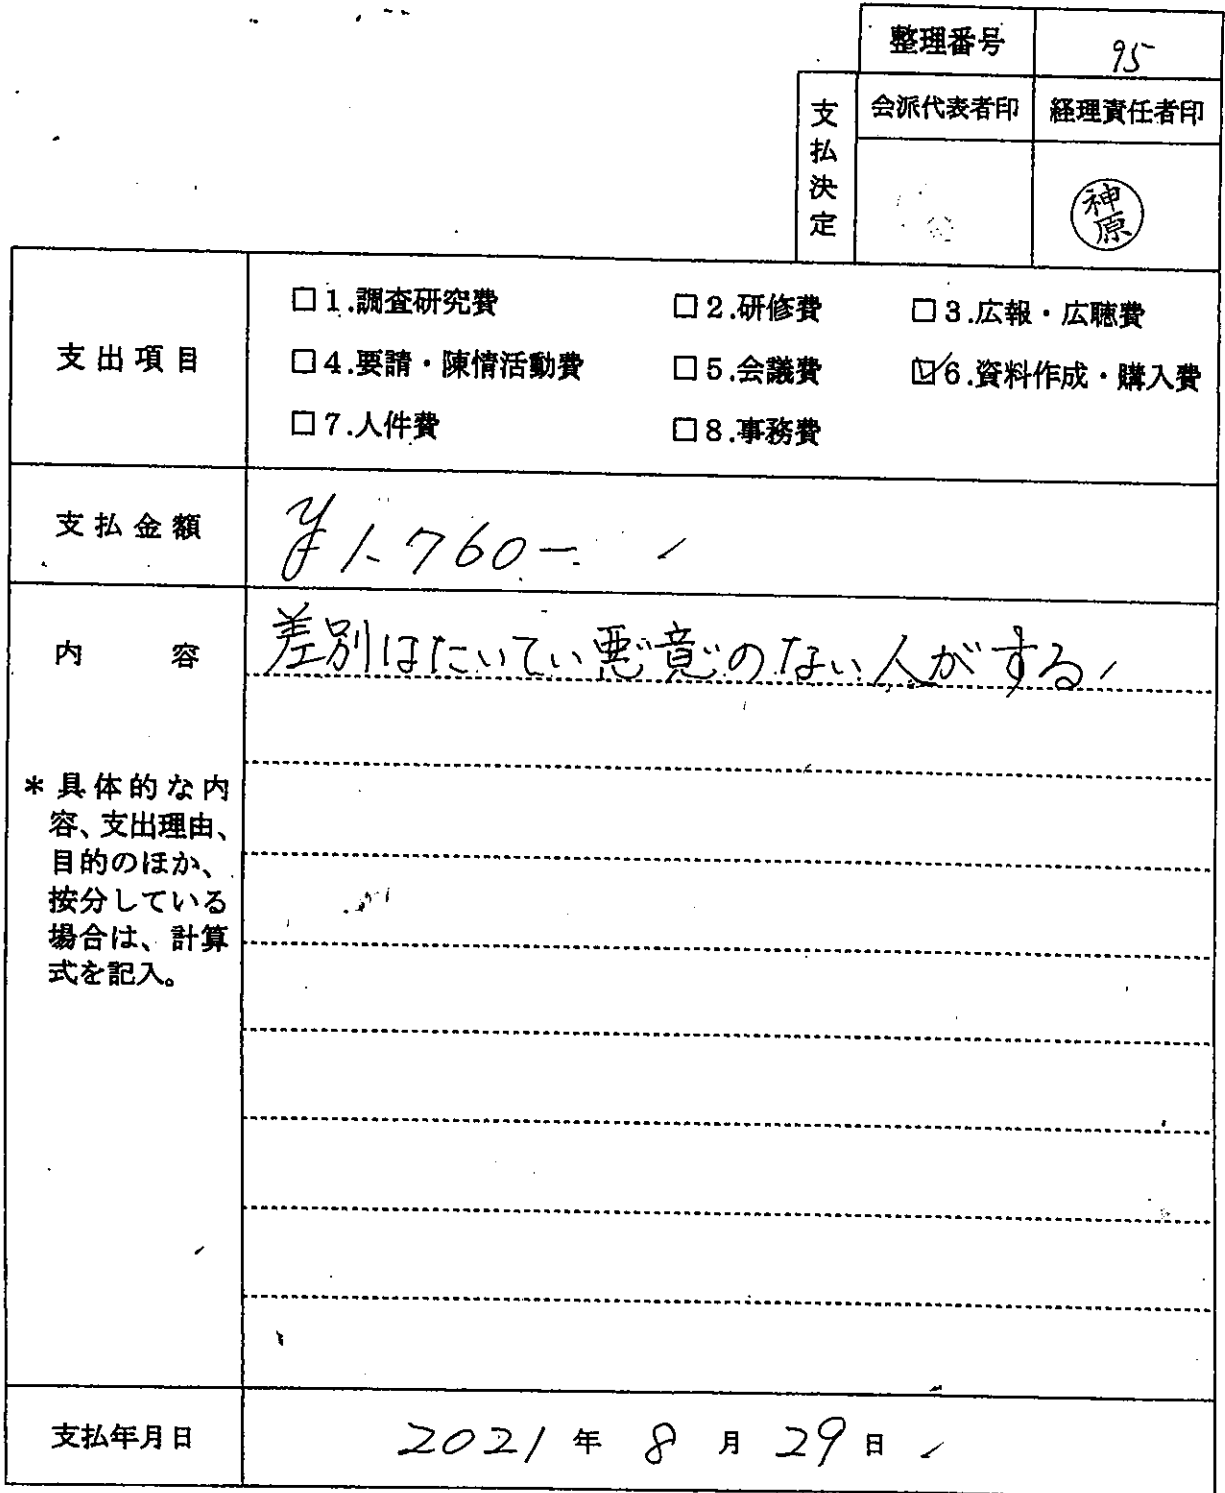 整理番号 95
支払決定 会派代表者印 経理責任者印
神原
支出項目
□1.調査研究費 □2.研修費 □3.広報・広聴費
□4.要請・陳情活動費 □5.会議費 ☑6.資料作成・購入費
□7.人件費 □8.事務費
支払金額 ¥1,760-
内容 差別はたいてい悪意のない人がする
*具体的な内
容、支出理由、
目的のほか、
按分している
場合は、計算
式を記入。
支払年月日 2021年8月29日